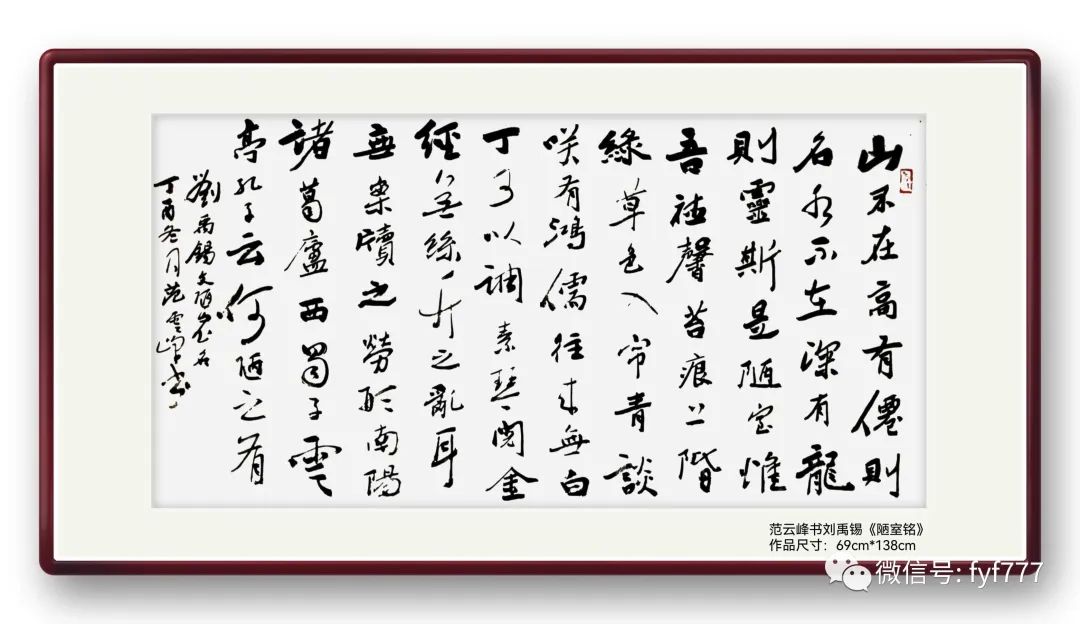 山不在高有僊則
名水不在深有龍
則靈斯是陋室惟
吾德馨苔痕上階
綠草色入帘青談
咲有鴻儒往来無白
丁可以調素琴閱金
經無絲竹之亂耳
無案牘之勞形南陽
諸葛廬西蜀子雲
亭孔子云何陋之有
劉禹錫文陋室銘
丁酉冬月范雲峰書
范云峰书刘禹锡《陋室铭》
作品尺寸：69cm*138cm
微信号: fyf777